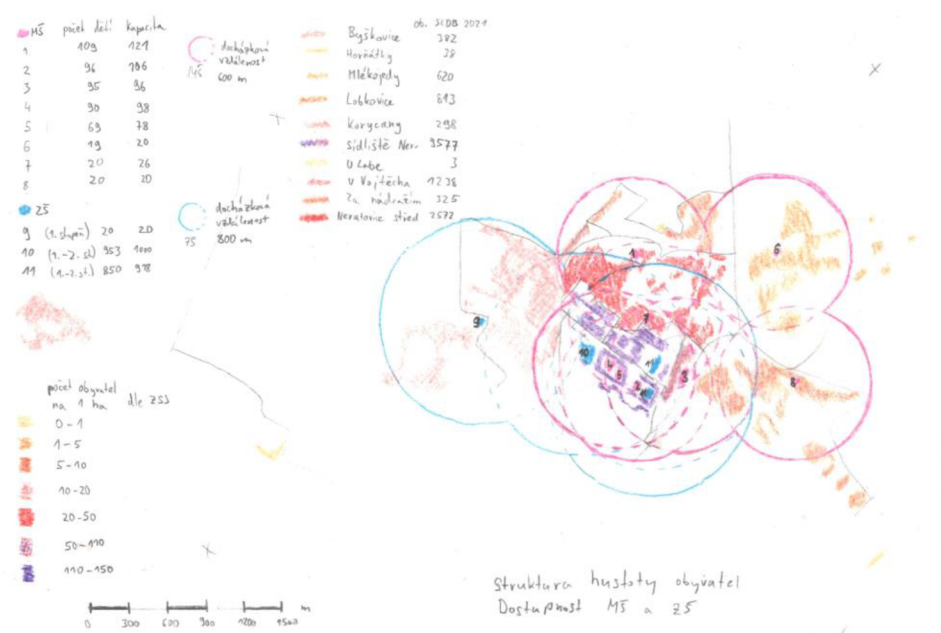 MŠ počet dětí kapacita
1 109 121
2 96 106
3 95 96
4 90 98
5 69 78
6 19 20
7 20 26
8 20 20
ZŠ
9 (1. stupeň) 20 20
10 (1.-2. st) 953 1000
11 (1.-2. st.) 850 978
docházková
vzdálenost
MŠ 600 m
docházková
vzdálenost
ZŠ 800 m
ob. SLDB 2021
Byškovice 382
Horňátky 38
Mlékojedy 620
Lobkovice 813
Korycany 298
Sídliště Ner. 9577
U Labe 3
U Vojtěcha 1238
Za nádražím 325
Neratovice střed 2572
1
6
9
7
10
11
4
5
3
2
8
počet obyvatel
na 1 ha dle ZSJ
0-1
1-5
5-10
10-20
20-50
50-110
110-150
0 300 600 900 1200 1500 m
Struktura hustoty obyvatel
Dostupnost MŠ a ZŠ